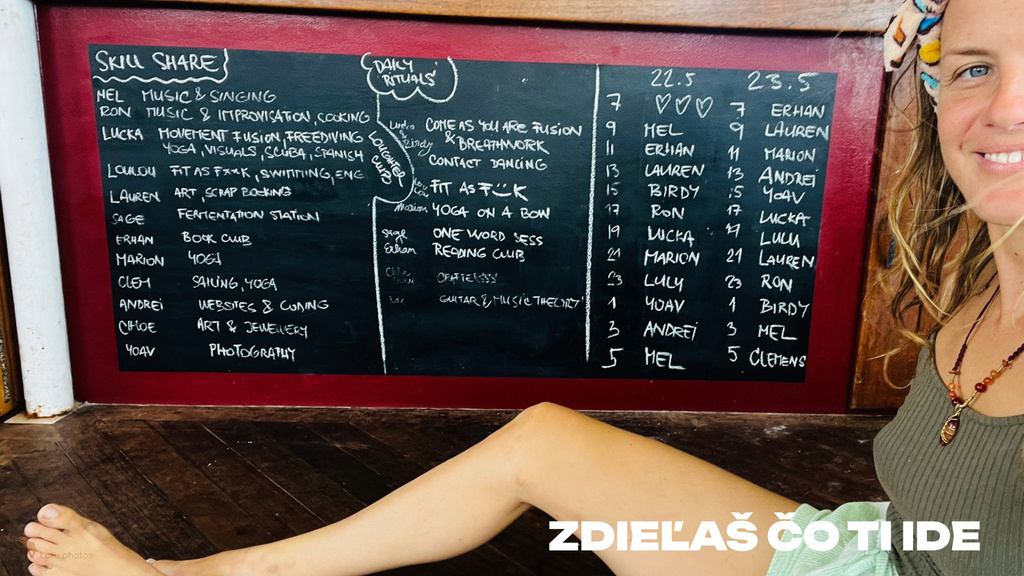 SKILL SHARE
MEL MUSIC & SINGING
RON MUSIC & IMPROVISATION, COOKING
LUCKA MOVEMENT FUSION, FREEDIVING
YOGA, VISUALS, SCUBA, SPANISH
LOULOU FIT AS F**K, SWIMMING, ENG
LAUREN ART, SCRAP BOOKING
SAGE FERMENTATION STATION
ERHAN BOOK CLUB
MARION YOGA
CLEM SAILING, YOGA
ANDREI WEBSITES & CODING
CHLOE ART & JEWELLERY
YOAV PHOTOGRAPHY
DAILY
RITUALS
COME AS YOU ARE FUSION
& BREATHWORK
CONTACT DANCING
FIT AS F:K
Marion YOGA ON A BOW
Sage ONE WORD SESS
Erhan READING CLUB
GUITAR & MUSIC THEORY
22.5
7 ♡♡♡
9 MEL
11 ERHAN
13 LAUREN
15 BIRDY
17 RON
19 LUCKA
21 MARION
23 LULU
1 YOAV
3 ANDREI
5 MEL
23.5
7 ERHAN
9 LAUREN
11 MARION
13 ANDREI
15 YOAV
17 LUCKA
19 LULU
21 LAUREN
23 RON
1 BIRDY
3 MEL
5 CLEMENS
ZDIEĽAŠ ČO TI IDE